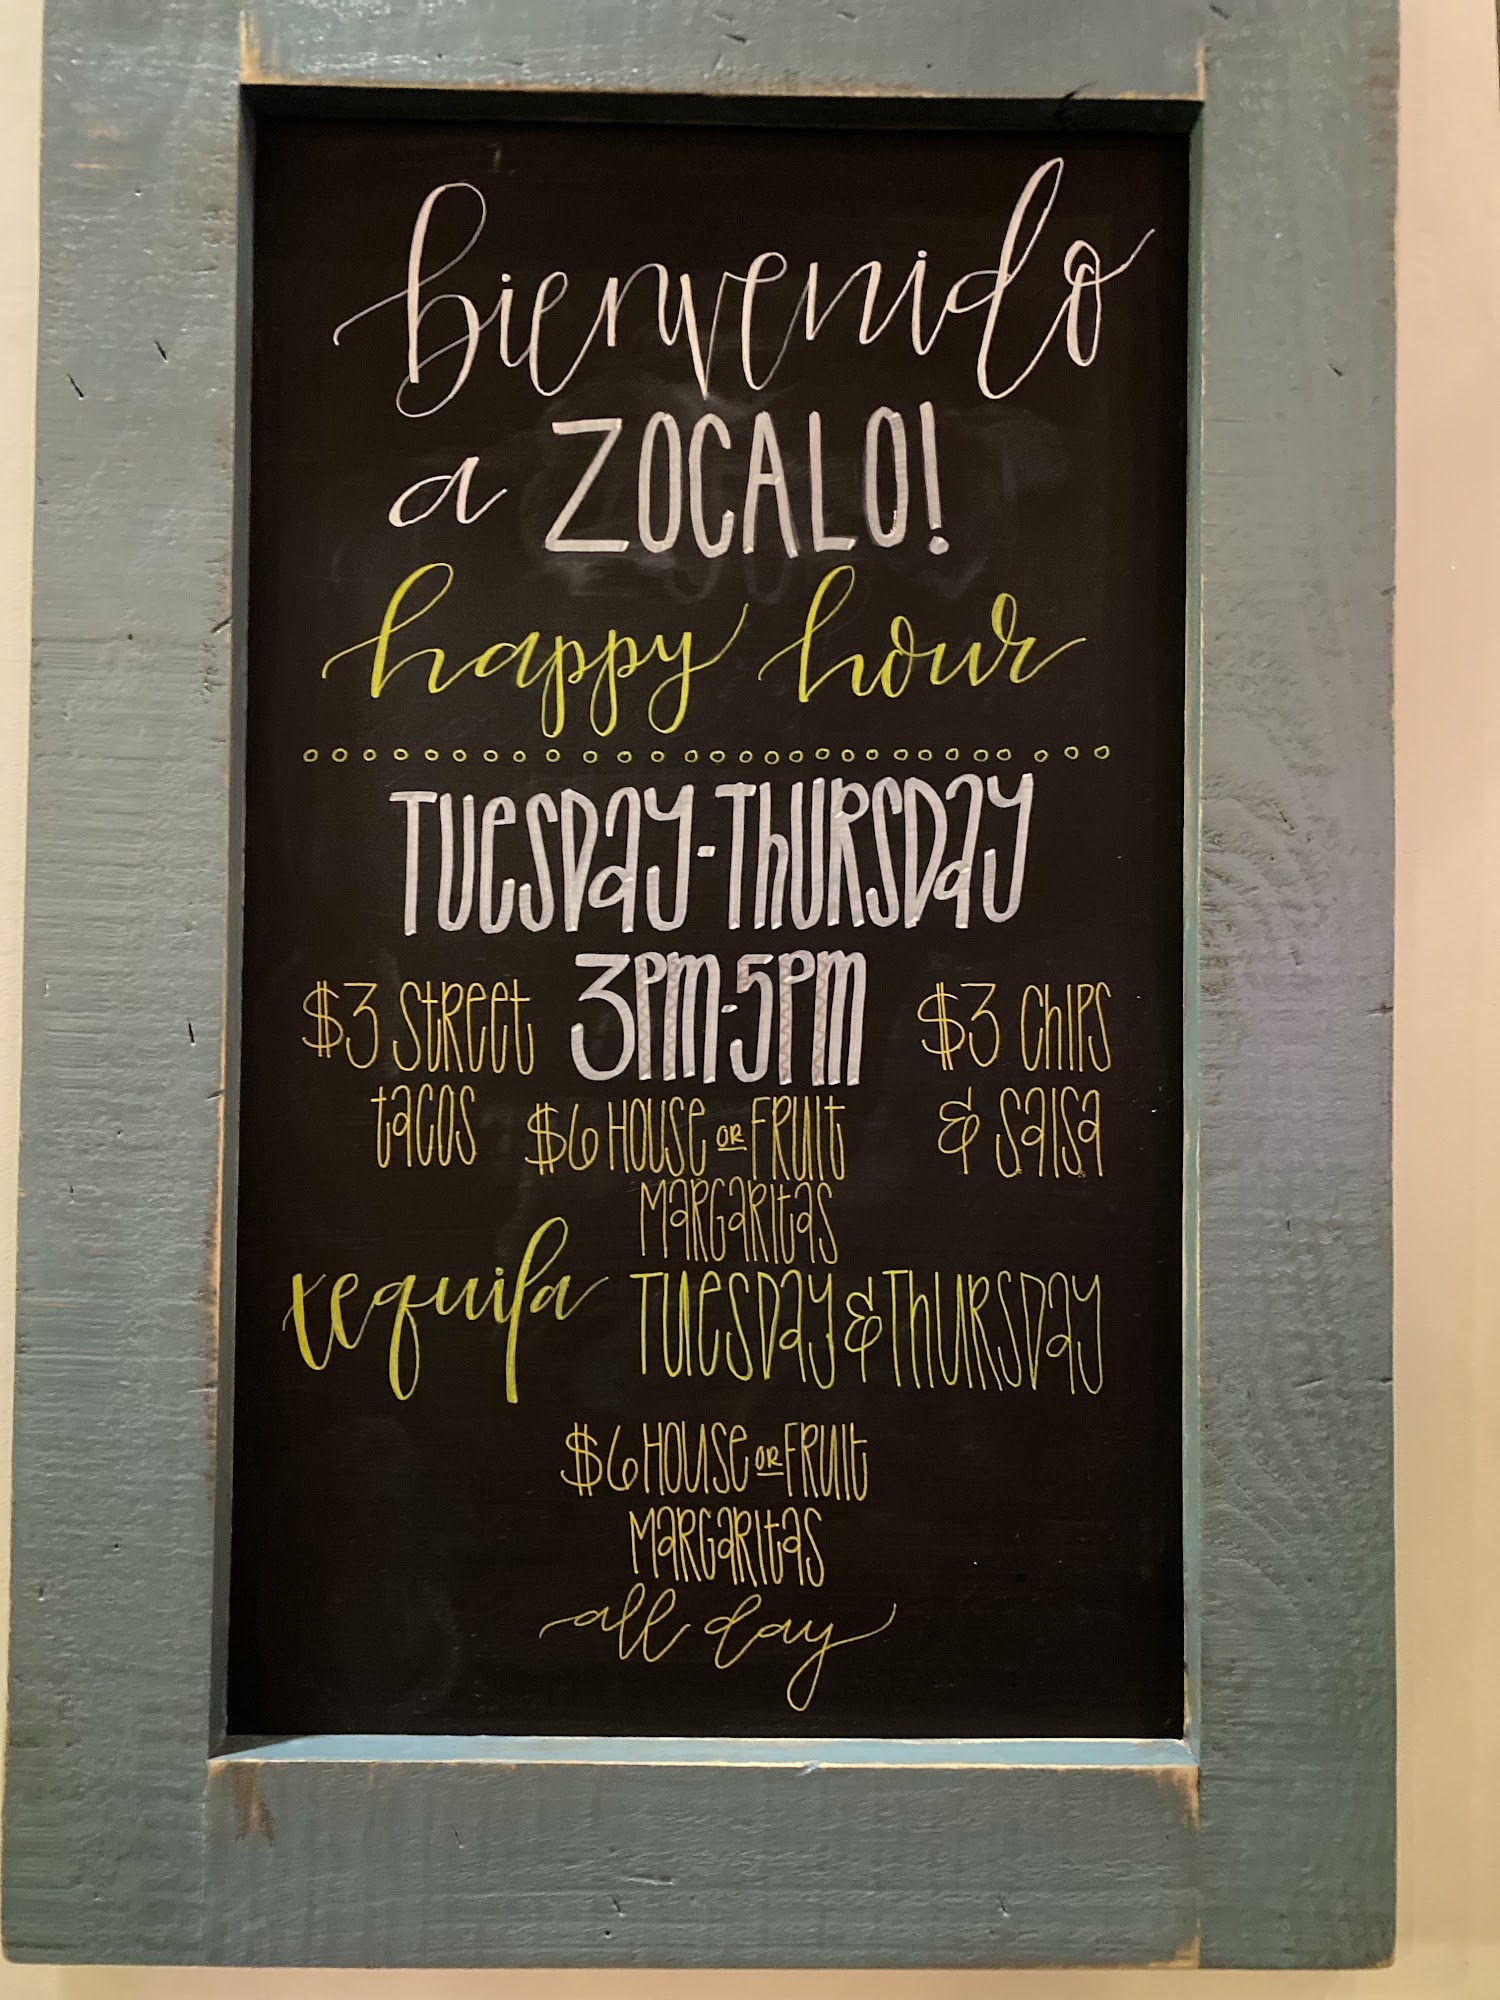 bienvenido
a ZOCALO!
happy hour
TUESDAY-THURSDAY
3PM-5PM
$3 STREET
TACOS
$3 CHIPS
& SALSA
$6 HOUSE OR FRUIT
MARGARITAS
tequila TUESDAY & THURSDAY
$6 HOUSE OR FRUIT
MARGARITAS
all day